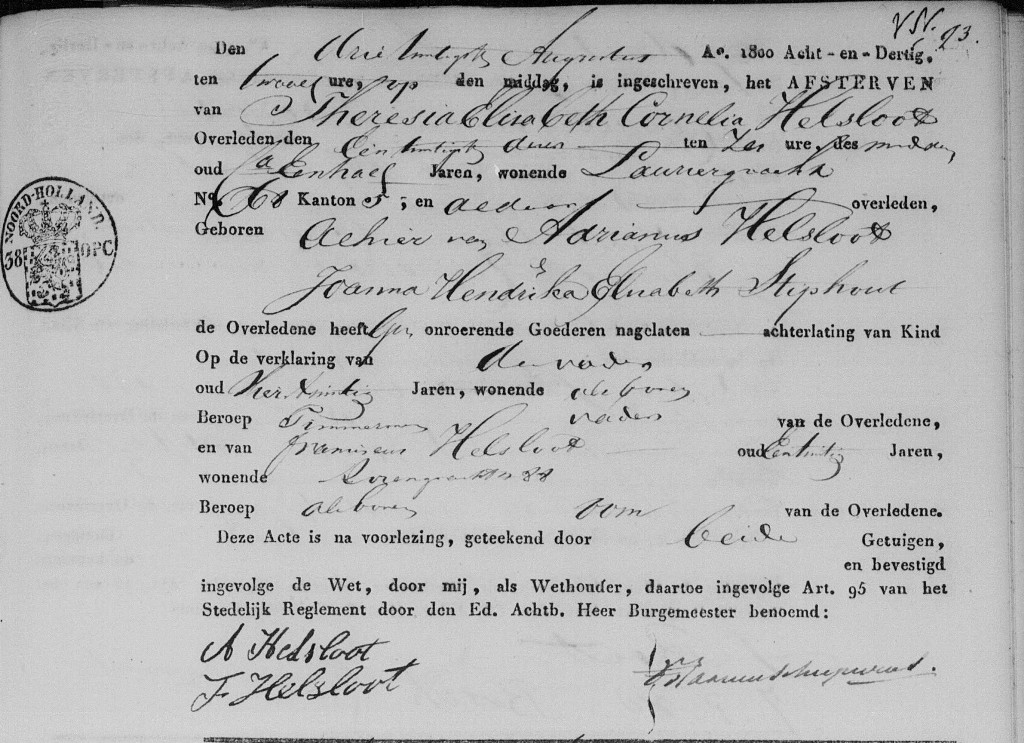 VSN. 93.
Den drie twintigste Augustus A°. 1800 Acht-en-Dertig,
ten twaalf ure, op den middag, is ingeschreven, het AFSTERVEN
van Theresia Elisabeth Cornelia Helsloot
Overleden den Een twintigste dezer ten Zes ure, des middags
oud Een half Jaren, wonende Lauriergracht
N° 68 Kanton 5; en aldaar overleden,
Geboren alhier van Adrianus Helsloot
&
Joanna Hendrika Elisabeth Stiphout
de Overledene heeft Geen onroerende Goederen nagelaten achterlating van Kind
Op de verklaring van de vader
oud Vier twintig Jaren, wonende als boven
Beroep Timmerman vader van de Overledene,
en van Franciscus Helsloot oud Een twintig Jaren,
wonende Rozengracht N 88
Beroep als boven oom van de Overledene.
Deze Acte is na voorlezing, geteekend door beide Getuigen,
en bevestigd
ingevolge de Wet, door mij, als Wethouder, daartoe ingevolge Art. 95 van het
Stedelijk Reglement door den Ed. Achtb. Heer Burgemeester benoemd:
A Helsloot
F Helsloot
NOORD-HOLLAND.
38 OPC